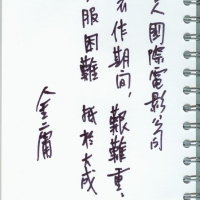 人國際電影公司
作期間,艱難重
服困難 抵於大成
金庸